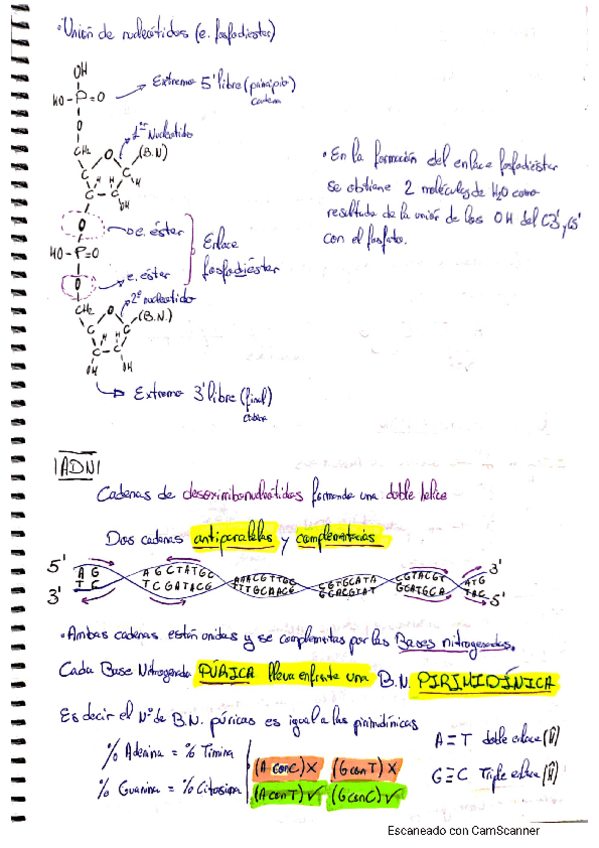 ·Unión de nucleótidos (e. fosfodiester)
OH
HO-P=O
O
CH₂
Extremo 5' libre (principio)
cadena
1er Nucleótido
(B.N)
O
C
C
H
H
C
C
H
OH
O
e. éster
HO-P=O
O
e. éster
Enlace
fosfodiéster
2º nucleótido
CH₂
O
(B.N.)
C
C
H
H
C
C
OH
OH
Extremo 3' libre (final)
cadena
·En la formación del enlace fosfodiéster
se obtiene 2 moléculas de H₂O como
resultado de la unión de los OH del C3' y C5'
con el fosfato.
ADN
Cadenas de desoxirribonucleótidos formando una doble hélice
Dos cadenas antiparalelas y complementarias
5' AG AGCTATGC AAACGTTGC CGTGCATA CGTACGT ATG 3'
3' TC TCGATACG TTTGCAACG GCACGTAT GCATGCA TAC 5'
·Ambas cadenas están unidas y se complementas por las Bases nitrogenadas.
Cada Base Nitrogenada PÚRICA lleva enfrente una B.N. PIRIMIDÍNICA
Es decir el Nº de B.N. púricas es igual a las pirimidínicas
% Adenina = % Timina
(A con C) X (G con T) X
A=T doble enlace (H)
% Guanina = % Citosina
(A con T) ✓ (G con C) ✓
G≡C Triple enlace (H)
Escaneado con CamScanner